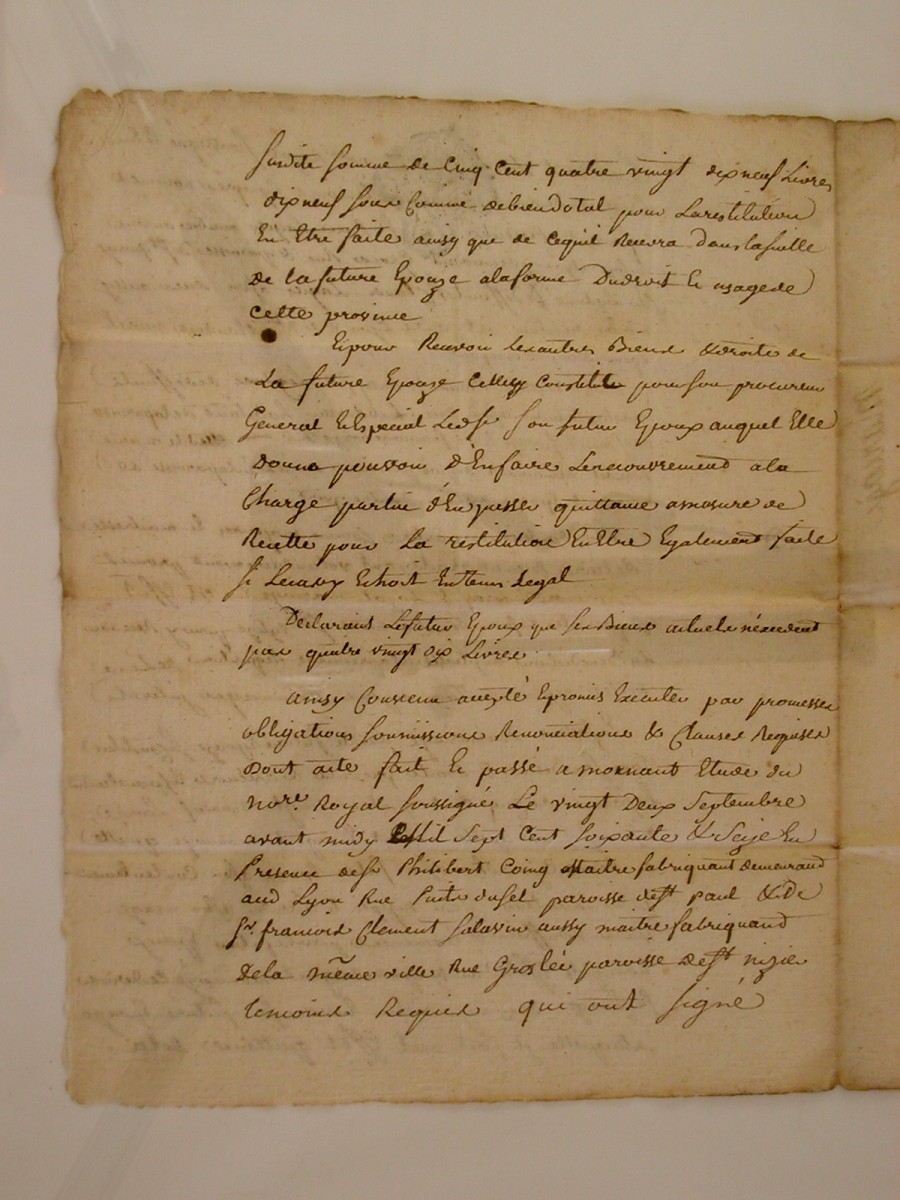 susdite somme de Cinq Cent quatre vingt dix neuf Livres
dix neuf sous Comme de bien dotal pour La restitution
En Etre faite ainsy que de Ce quil Recevra dans la suitte
De la future Epouze a la forme Du droit & usage de
Cette province
Et pour Recevoir Les autres Biens & droits de
La future Epouze Celle cy Constitue pour son procureur
General & Especial Led. sr. son futur Epoux auquel Elle
Donne pouvoir d'En faire Le recouvrement a la
Charge par lui d'En passer quittance a mesure de
Recette pour La restitution En Etre Egalement faite
si Le cas y Echoit En tems Legal
Declarant Le futur Epoux que ses Biens actuels n'excedent
pas quatre vingt dix Livres
ainsy Convenu accepté & promis Executer par promesses
obligations soumissions Renonciations & Clauses Requises
Dont acte fait & passé a mornant Etude du
nore. Royal soussigné Le vingt Deux Septembre
avant midy Mil Sept Cent soixante & Seize En
Presence de sr. Philibert Coing Maitre fabriquant demeurand
aud Lyon Rue Puits du sel paroisse de st. Paul & De
sr. francois Clement Salavin aussy maitre fabriquand
De la même ville Rue Groslée paroisse de st. nizie
temoins Requis qui ont signé